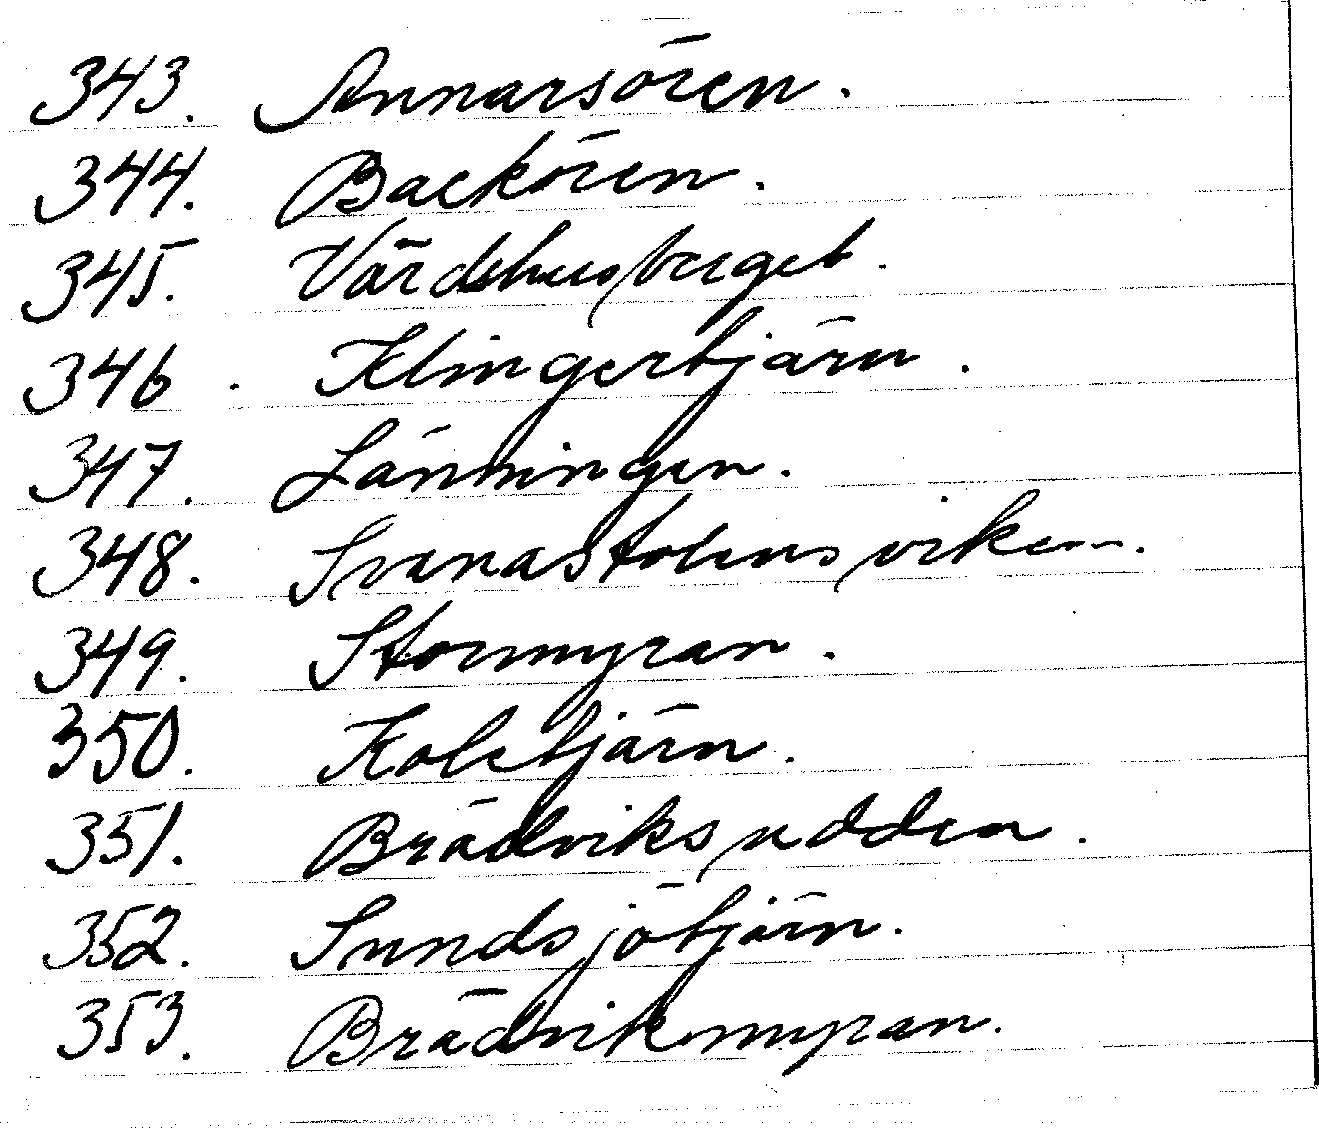 343. Annarsören.
344. Backören.
345. Värdshusberget.
346. Klingertjärn.
347. Länningen.
348. Svanastolensviken.
349. Stormyran.
350. Koletjärn.
351. Brädviksudden.
352. Sundsjötjärn.
353. Brädvikmyran.